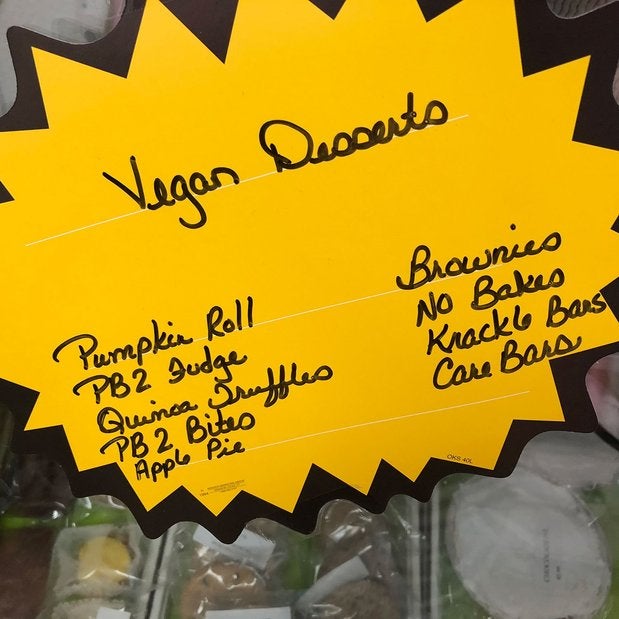 Vegan Desserts
Pumpkin Roll
PB2 Fudge
Quinoa Truffles
PB2 Bites
Apple Pie
Brownies
No Bakes
Knackle Bars
Care Bars
OKS 40L